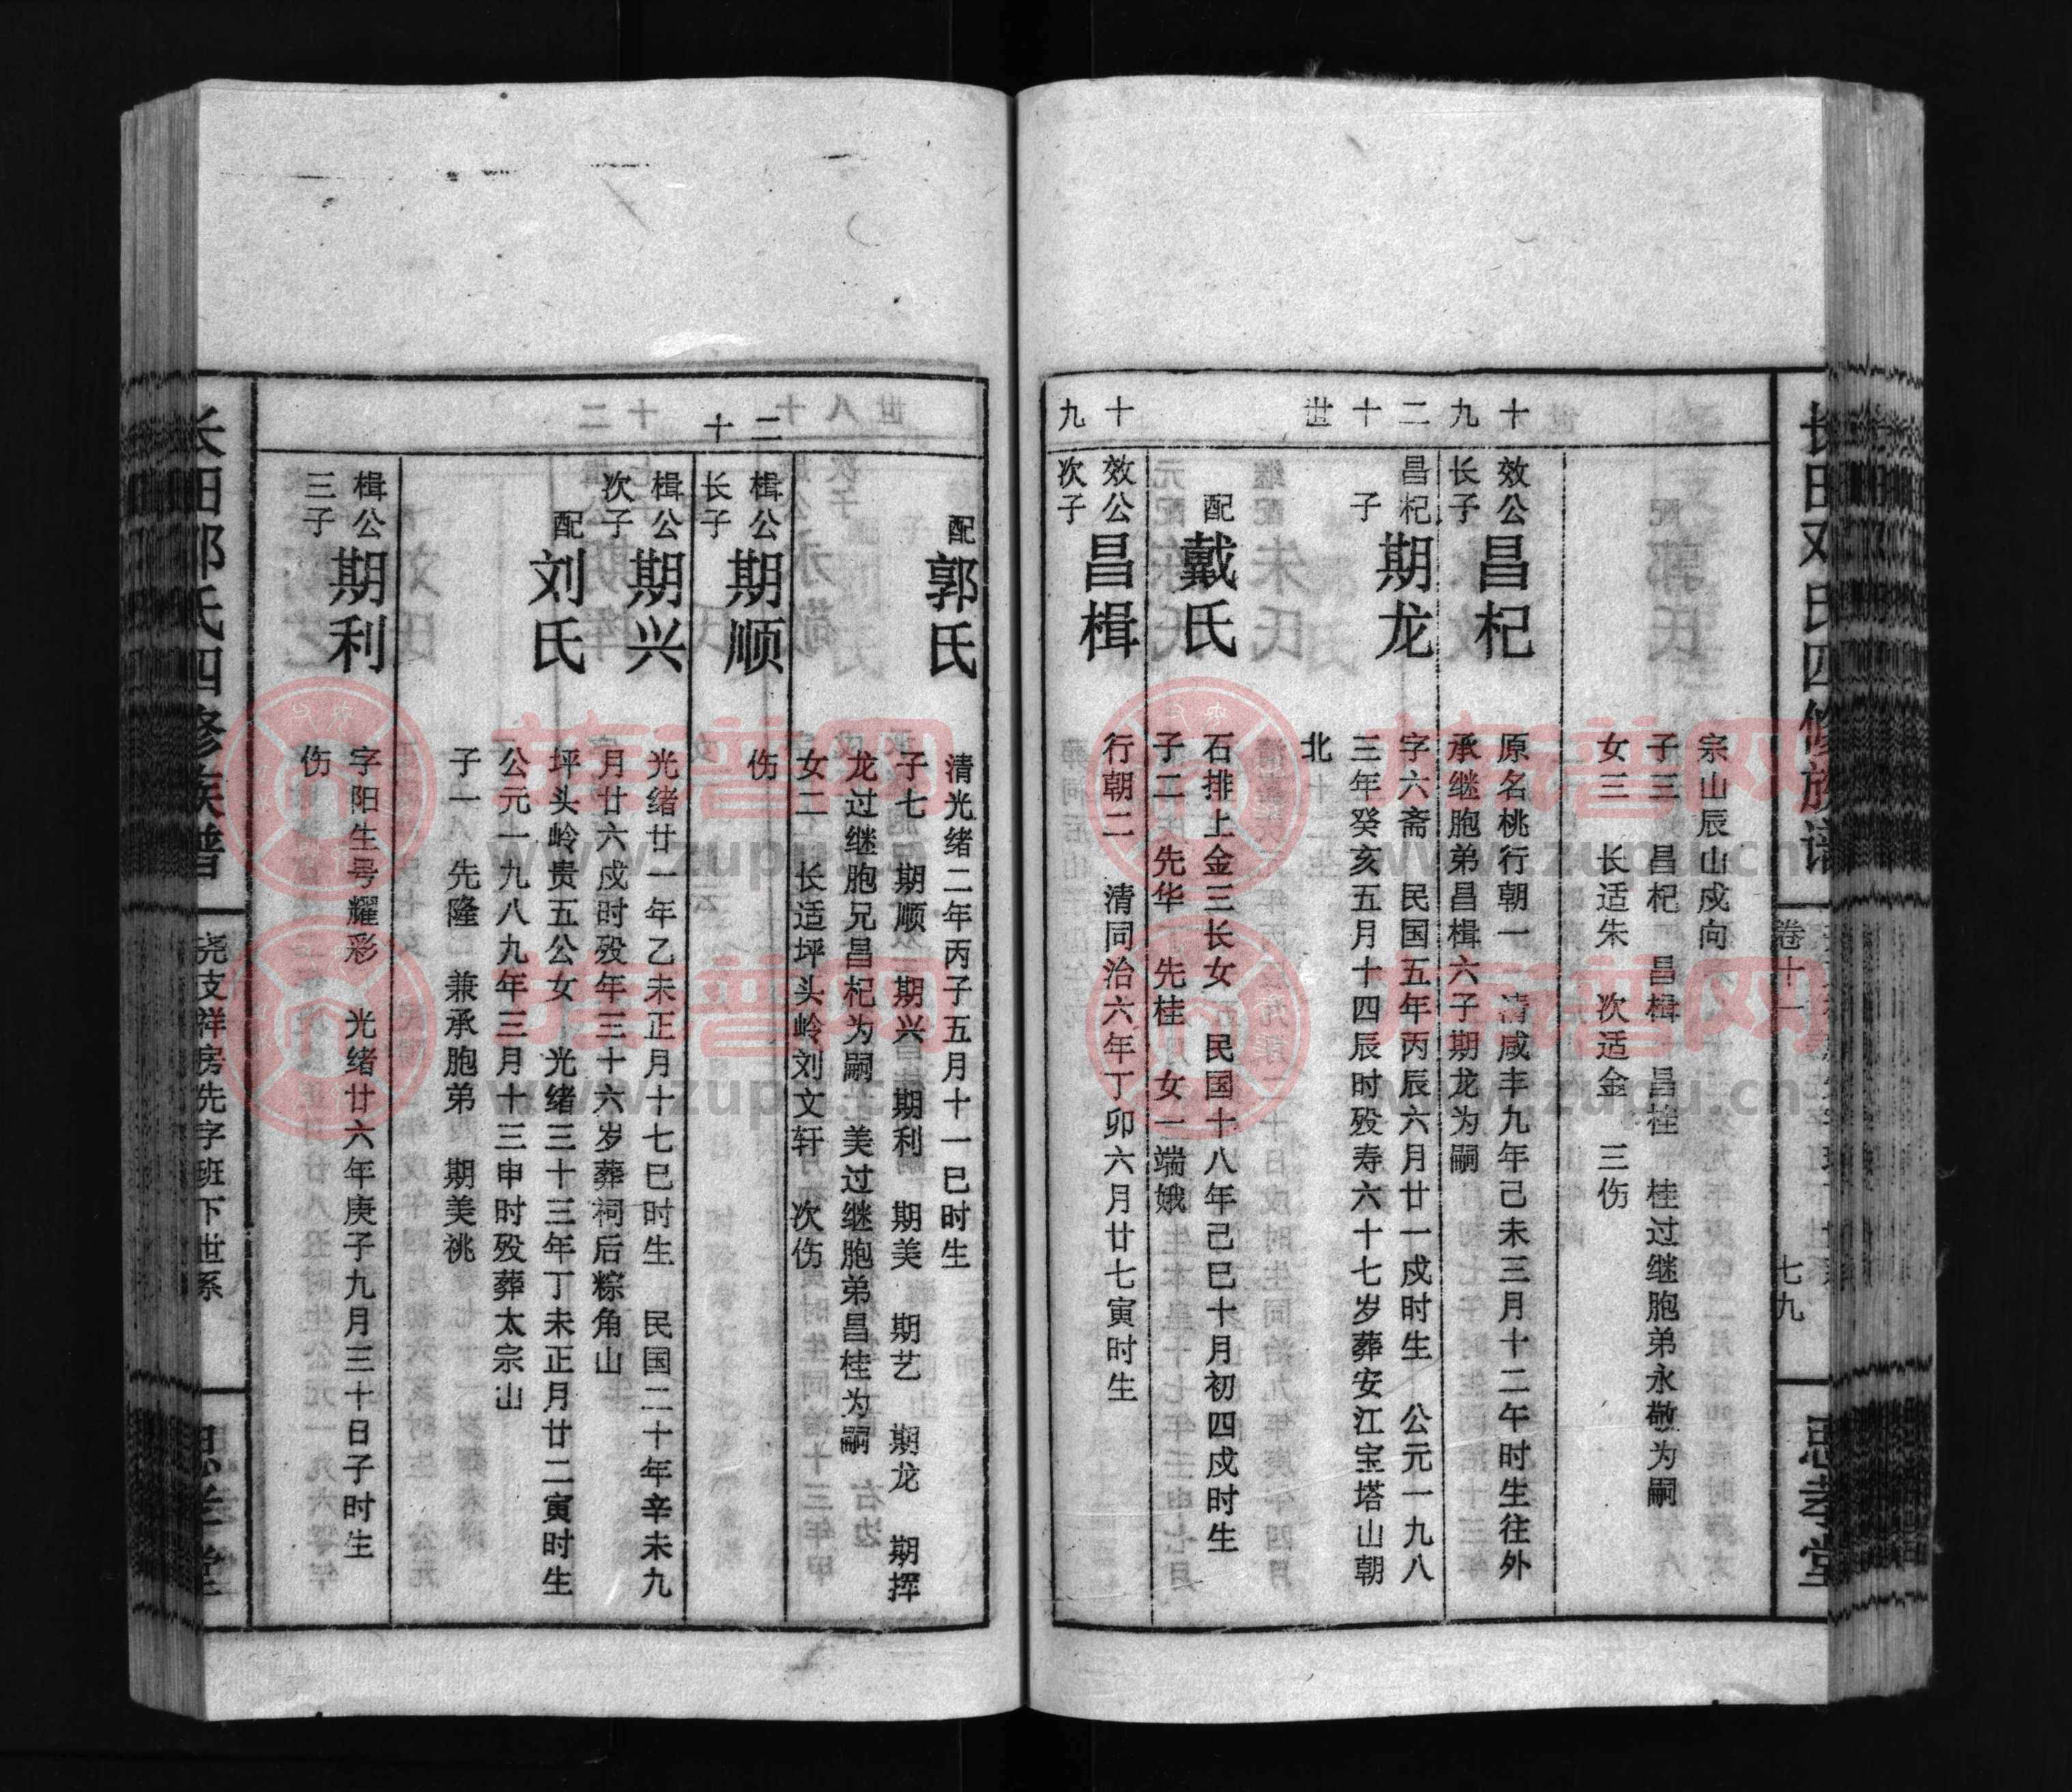 长田邓氏四修族谱
卷十一
七九
思孝堂
宗山辰山戍向
子三 昌杞 昌楫 昌桂 桂过继胞弟永敬为嗣
女三 长适朱 次适金 三伤
十九
效公
长子
昌杞
原名桃行朝一 清咸丰九年己未三月十二午时生往外
承继胞弟昌楫六子期龙为嗣
二十世
昌杞
子
期龙
字六斋 民国五年丙辰六月廿一戍时生 公元一九八
三年癸亥五月十四辰时殁寿六十七岁葬安江宝塔山朝
北
配
戴氏
石排上金三长女 民国十八年己巳十月初四戍时生
子二 先华 先桂 女一端娥
十九
效公
次子
昌楫
行朝二 清同治六年丁卯六月廿七寅时生
配
郭氏
清光绪二年丙子五月十一巳时生
子七 期顺 期兴 期利 期美 期艺 期龙 期挥
龙过继胞兄昌杞为嗣 美过继胞弟昌桂为嗣
女二 长适坪头岭刘文轩 次伤
二十
楫公
长子
期顺
伤
楫公
次子
期兴
光绪廿一年乙未正月十七巳时生 民国二十年辛未九
月廿六戍时殁年三十六岁葬祠后粽角山
配
刘氏
坪头岭贵五公女 光绪三十三年丁未正月廿二寅时生
公元一九八九年三月十三申时殁葬太宗山
子一 先隆 兼承胞弟 期美祧
楫公
三子
期利
字阳生号耀彩 光绪廿六年庚子九月三十日子时生
伤
长田邓氏四修族谱
尧支祥房先字班下世系
思孝堂
族谱网
www.zupu.cn
族谱网
www.zupu.cn
族谱网
www.zupu.cn
族谱网
www.zupu.cn